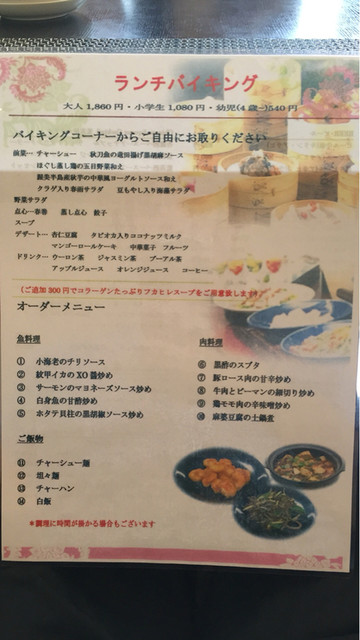 ランチバイキング
大人 1,860円・小学生 1,080円・幼児(4歳~)540円
バイキングコーナーからご自由にお取りください
前菜… チャーシュー 秋刀魚の竜田揚げ黒胡麻ソース
ほぐし蒸し鶏の五目野菜和え
クラゲ入り春雨サラダ 豆もやし入り海藻サラダ
野菜サラダ
点心…春巻 蒸し点心 餃子
スープ
デザート… 杏仁豆腐 タピオカ入りココナッツミルク
マンゴーロールケーキ 中華菓子 フルーツ
ドリンク… ウーロン茶 ジャスミン茶 プーアル茶
アップルジュース オレンジジュース コーヒー
(ご追加 300円でコラーゲンたっぷりフカヒレスープをご用意致します)
オーダーメニュー
魚料理
① 小海老のチリソース
② 紋甲イカのXO醤炒め
③ サーモンのマヨネーズソース炒め
④ 白身魚の甘酢炒め
⑤ ホタテ貝柱の黒胡椒ソース炒め
肉料理
⑥ 黒酢のスブタ
⑦ 豚ロース肉の甘辛炒め
⑧ 牛肉とピーマンの細切り炒め
⑨ 鶏モモ肉の辛味噌炒め
⑩ 麻婆豆腐の土鍋煮
ご飯物
⑪ チャーシュー麺
⑫ 坦々麺
⑬ チャーハン
⑭ 白飯
*調理に時間が掛かる場合もございます